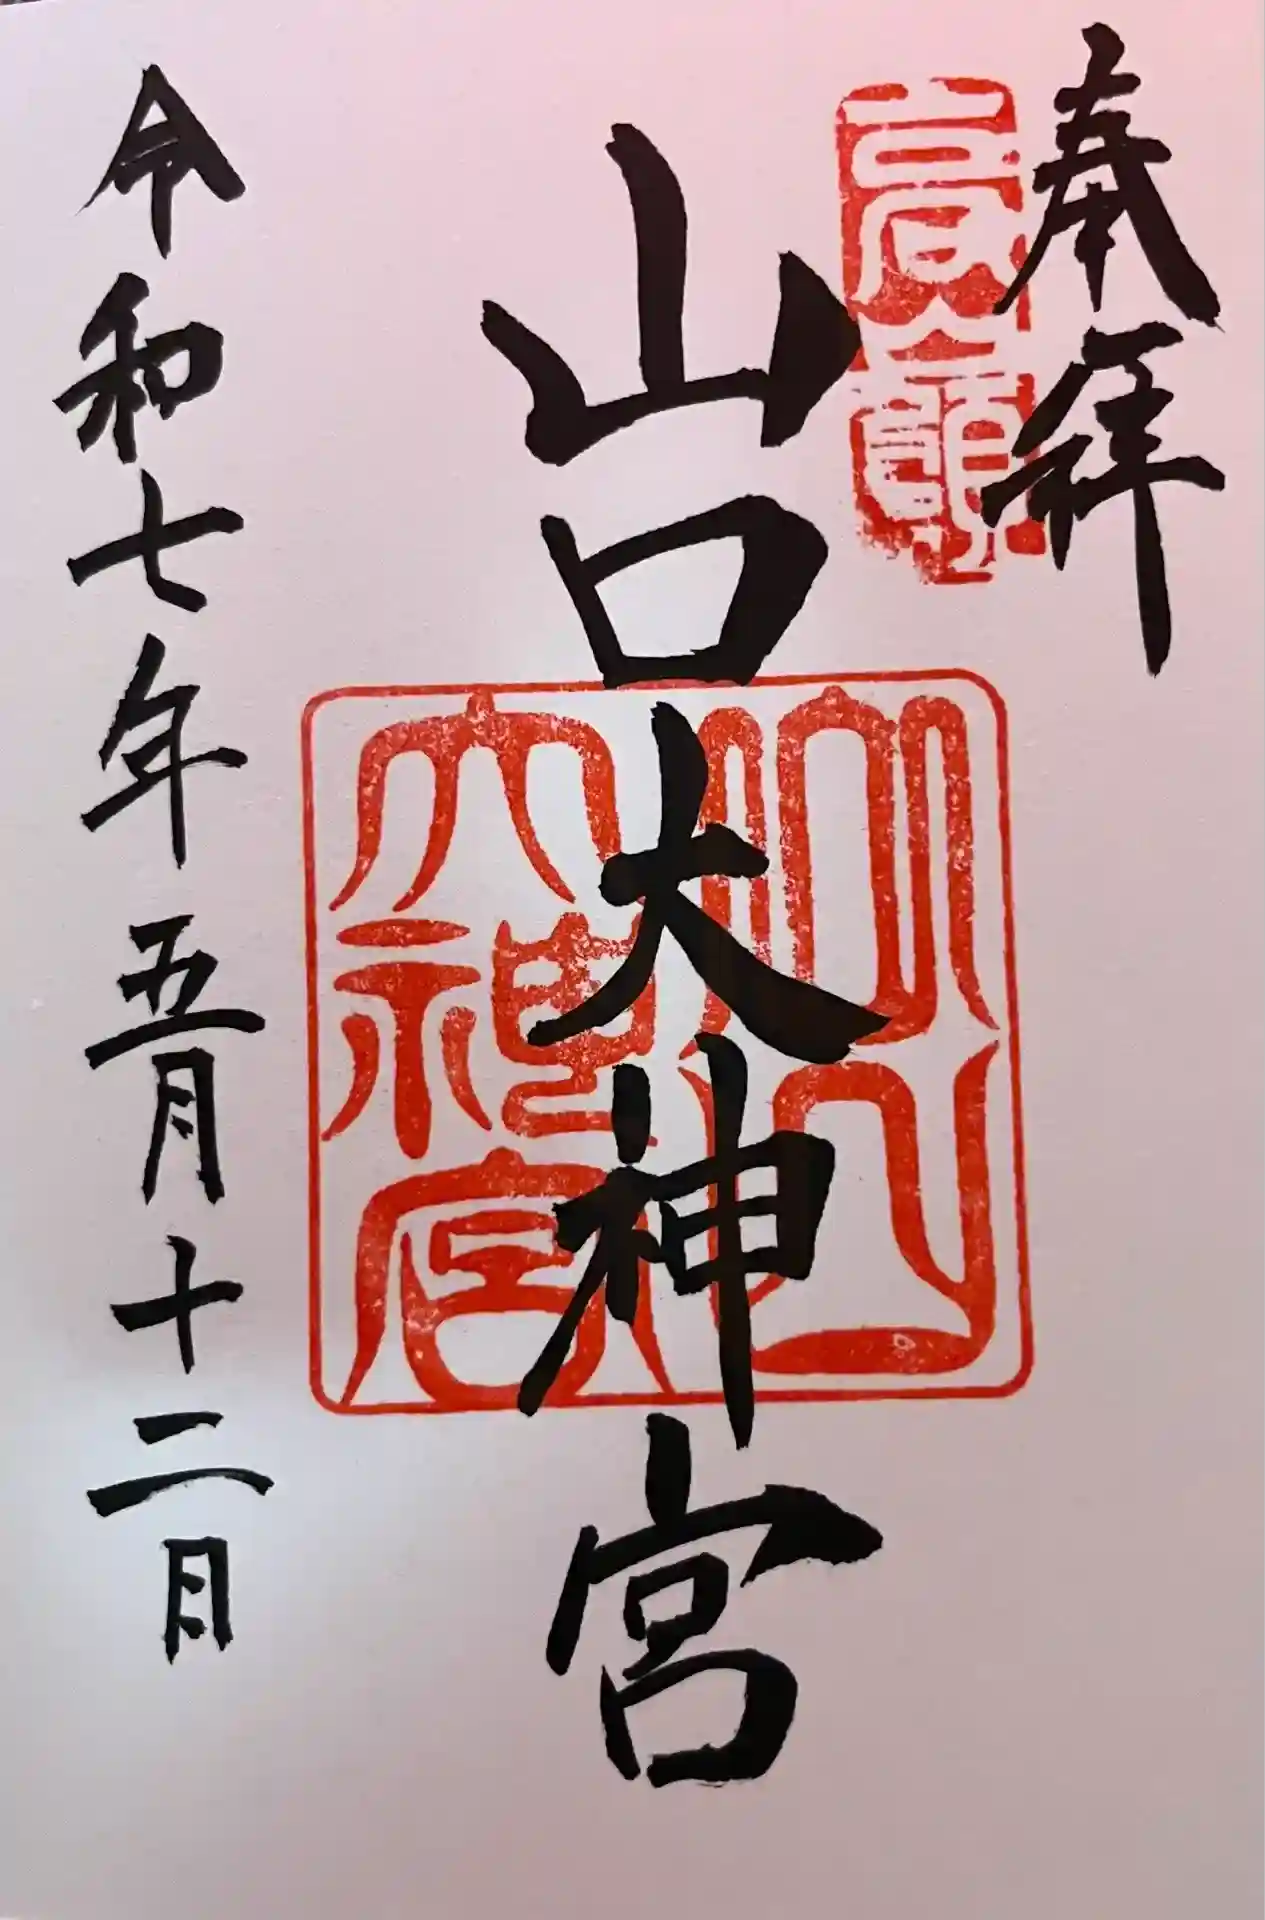 奉拝
高嶺
山口大神宮
山口大神宮
令和七年五月十二日